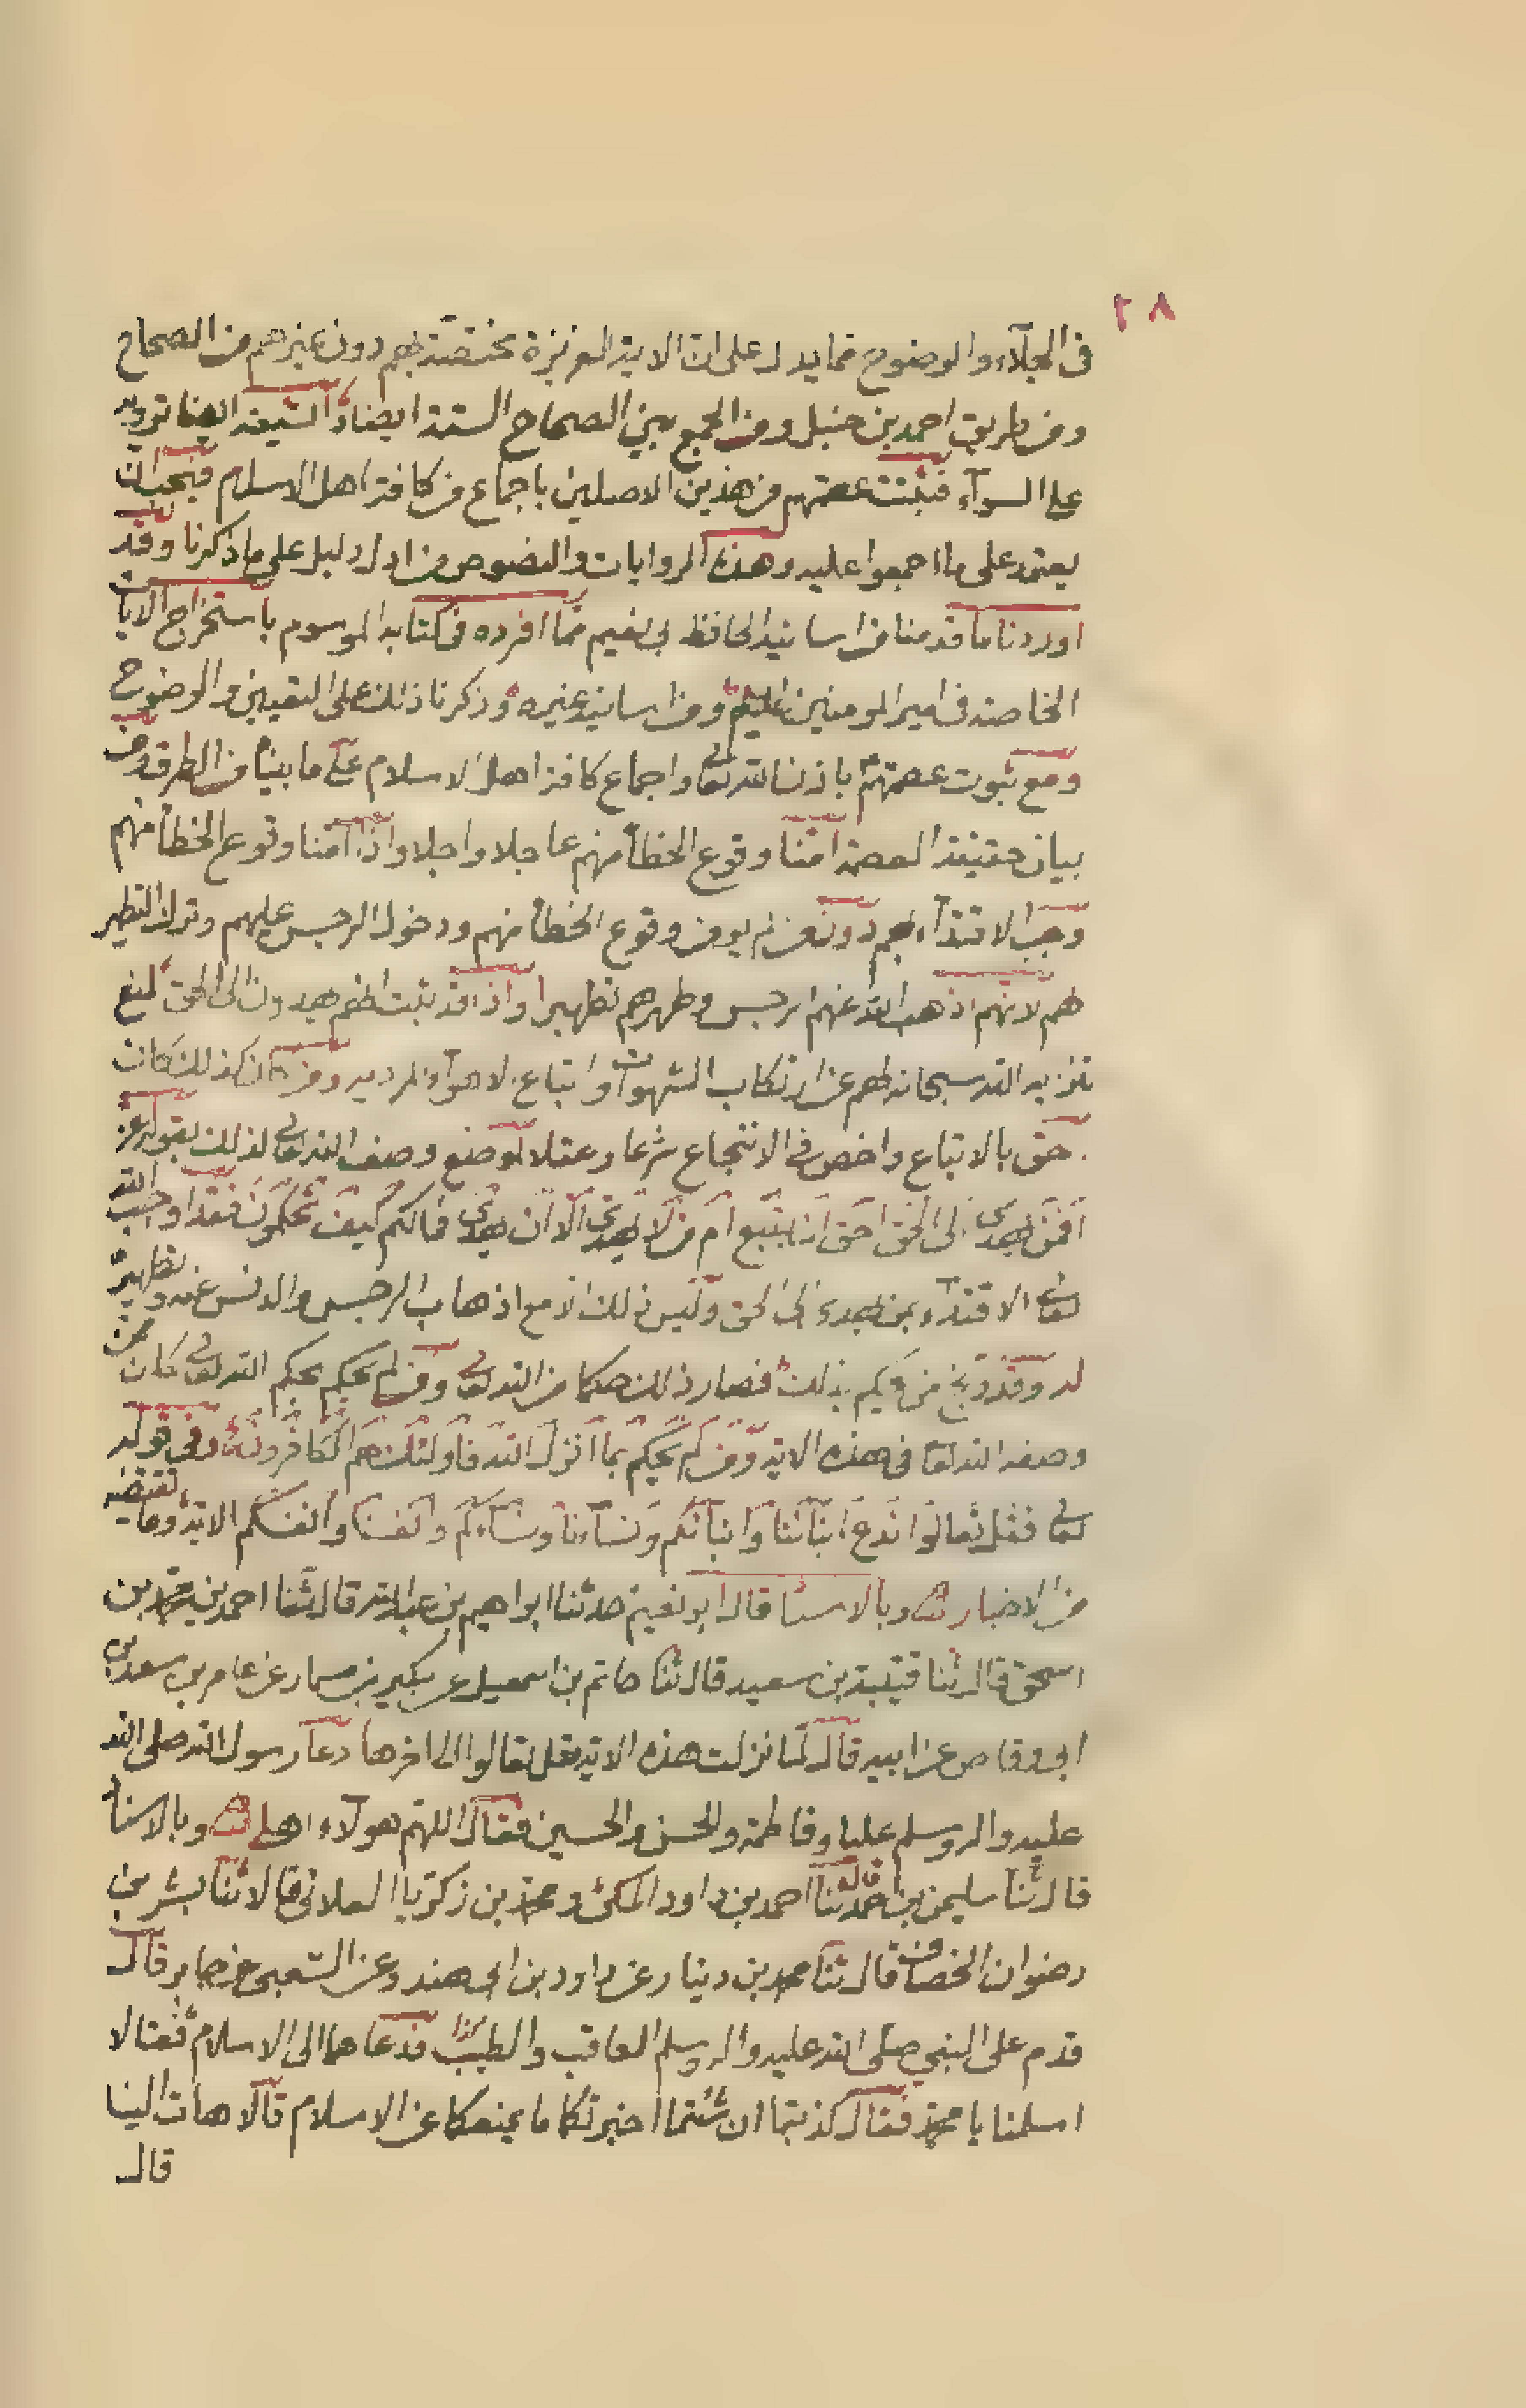 ٢٨
فى الجلآء والوضوح مما يدل على ان الاية العزيزة مختصّة بهم دون غيرهم من الصحاح
ومن طريق احمد بن حنبل ومن الجمع بين الصحاح الستة ايضا والشيعة ايضا ترويه
على السوآء فثبتت عصمتهم من هذين الاصلين باجماع من كافة اهل الاسلام فيجب ان
يعتمد على ما اجمعوا عليه وهذه الروايات والنصوص من ادل دليل على ما ذكرنا وقد
اوردنا ما قدمنا من اسانيد الحافظ ابى نعيم ممّا افرده فى كتابه الموسوم باستخراج الايات
الخاصة فى امير المومنين عليهم ومن اسانيد غيره وذكرنا ذلك على التعيين والوضوح
ومع ثبوت عصمتهم باذن الله تعالى واجماع كافة اهل الاسلام على ما بيناه من الطرق ومن
بيان حقيقة العصمة امنّا وقوع الخطأ منهم عاجلا واجلا واذا امنا وقوع الخطأ منهم
وجب الاقتدآء بهم دون من لم يومن وقوع الخطأ منهم ودخول الرجس عليهم وترك التطهير
لهم لانهم اذهب الله عنهم الرجس وطهرهم تطهيرا واذا قد ثبت انهم يهدون الى الحق لمنع
تنزيه الله سبحانه لهم عن ارتكاب الشهوات واتباع الاهوآء المرديه ومن كان كذلك كان
احق بالاتباع واخص فى الانتجاع شرعا وعقلا لموضع وصف الله تعالى لذلك بقوله عز
أفمن يهدى الى الحق احق ان يتبع أم من لا يهدى الا ان يهدى فمالكم كيف تحكمون فقد اوجب الله
تعالى الاقتدآء بمن يهدى الى الحق وليس ذلك الا مع اذهاب الرجس والدنس عنه وتطهيره
له وقد وبخ من لم يحكم بذلك فصار ذلك حكما من الله تعالى ومن لم يحكم بحكم الله تعالى كان ممن
وصفه الله تعالى فى هذه الاية ومن لم يحكم بما انزل الله فاولئك هم الكافرون ومن قوله
تعالى فقل تعالوا ندع ابنآئنا وابنآئكم ونسآءنا ونسآءكم وانفسنا وانفسكم الاية وما تقتضيه
من الاخبار وبالاسناد قال ابو نعيم حدثنا ابراهيم بن عبد الله قال ثنا احمد بن محمد بن
اسحق قال ثنا قتيبة بن سعيد قال ثنا حاتم بن اسمعيل عن بكير بن مسمار عن عامر بن سعد بن
ابى وقاص عن ابيه قال لمّا نزلت هذه الاية فقل تعالوا الى اخرها دعا رسول الله صلى الله
عليه واله وسلم عليا وفاطمة والحسن والحسين فقال اللهم هولآء اهلى وبالاسناد
قال ثنا سليمن بن احمد قال ثنا احمد بن داود المكى ومحمد بن زكريا الغلابى قالا ثنا بشر بن
رضوان الخصاف قال ثنا محمد بن دينار عن داود بن ابى هند وعن الشعبى عن جابر قال
قدم على النبى صلى الله عليه واله وسلم العاقب والطيب فدعاهما الى الاسلام فقالا
اسلمنا يا محمد فقال كذبتما ان شئتما اخبرتكما ما يمنعكما عن الاسلام قالا هات الينا
قال